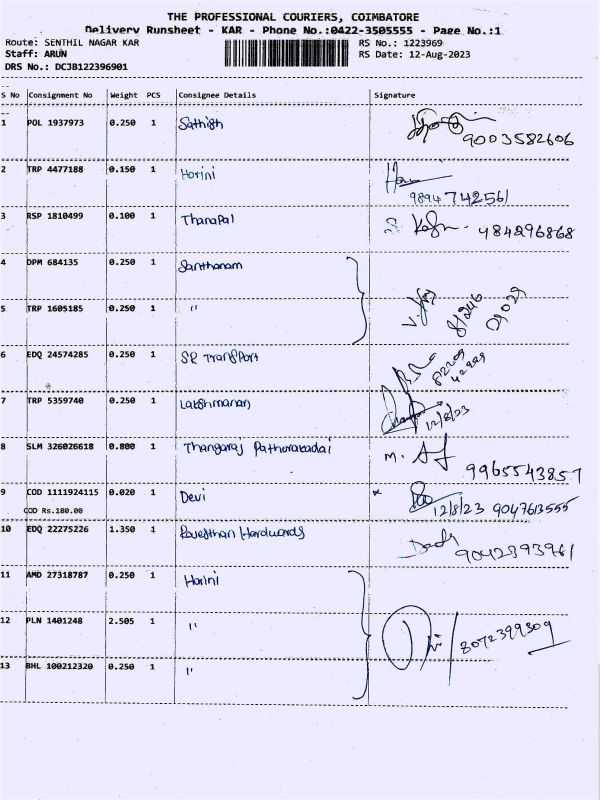 THE PROFESSIONAL COURIERS, COIMBATORE
Delivery Runsheet - KAR - Phone No.:0422-3505555 - Page No.:1
Route: SENTHIL NAGAR KAR RS No.: 1223969
Staff: ARUN RS Date: 12-Aug-2023
DRS No.: DCJB122396901
S No Consignment No Weight PCS Consignee Details Signature
1 POL 1937973 0.250 1 Sathish
9003582606
2 TRP 4477188 0.150 1 Harini
9894742561
3 RSP 1810499 0.100 1 Thanapal 484296868
4 DPM 684135 0.250 1 Santhanam
5 TRP 1605185 0.250 1 "
6 EDQ 24574285 0.250 1 SR Transport
7 TRP 5359740 0.250 1 Lakshmanan 12/8/23
8 SLM 326026618 0.800 1 Thangaraj
9965543857
9 COD 1111924115 0.020 1 Devi
COD Rs.180.00 12/8/23 9047613555
10 EDQ 22275226 1.350 1 Hardwards
9042393961
11 AMD 27318787 0.250 1 Harini
12 PLN 1401248 2.505 1 " 8072399309
13 BHL 100212320 0.250 1 "